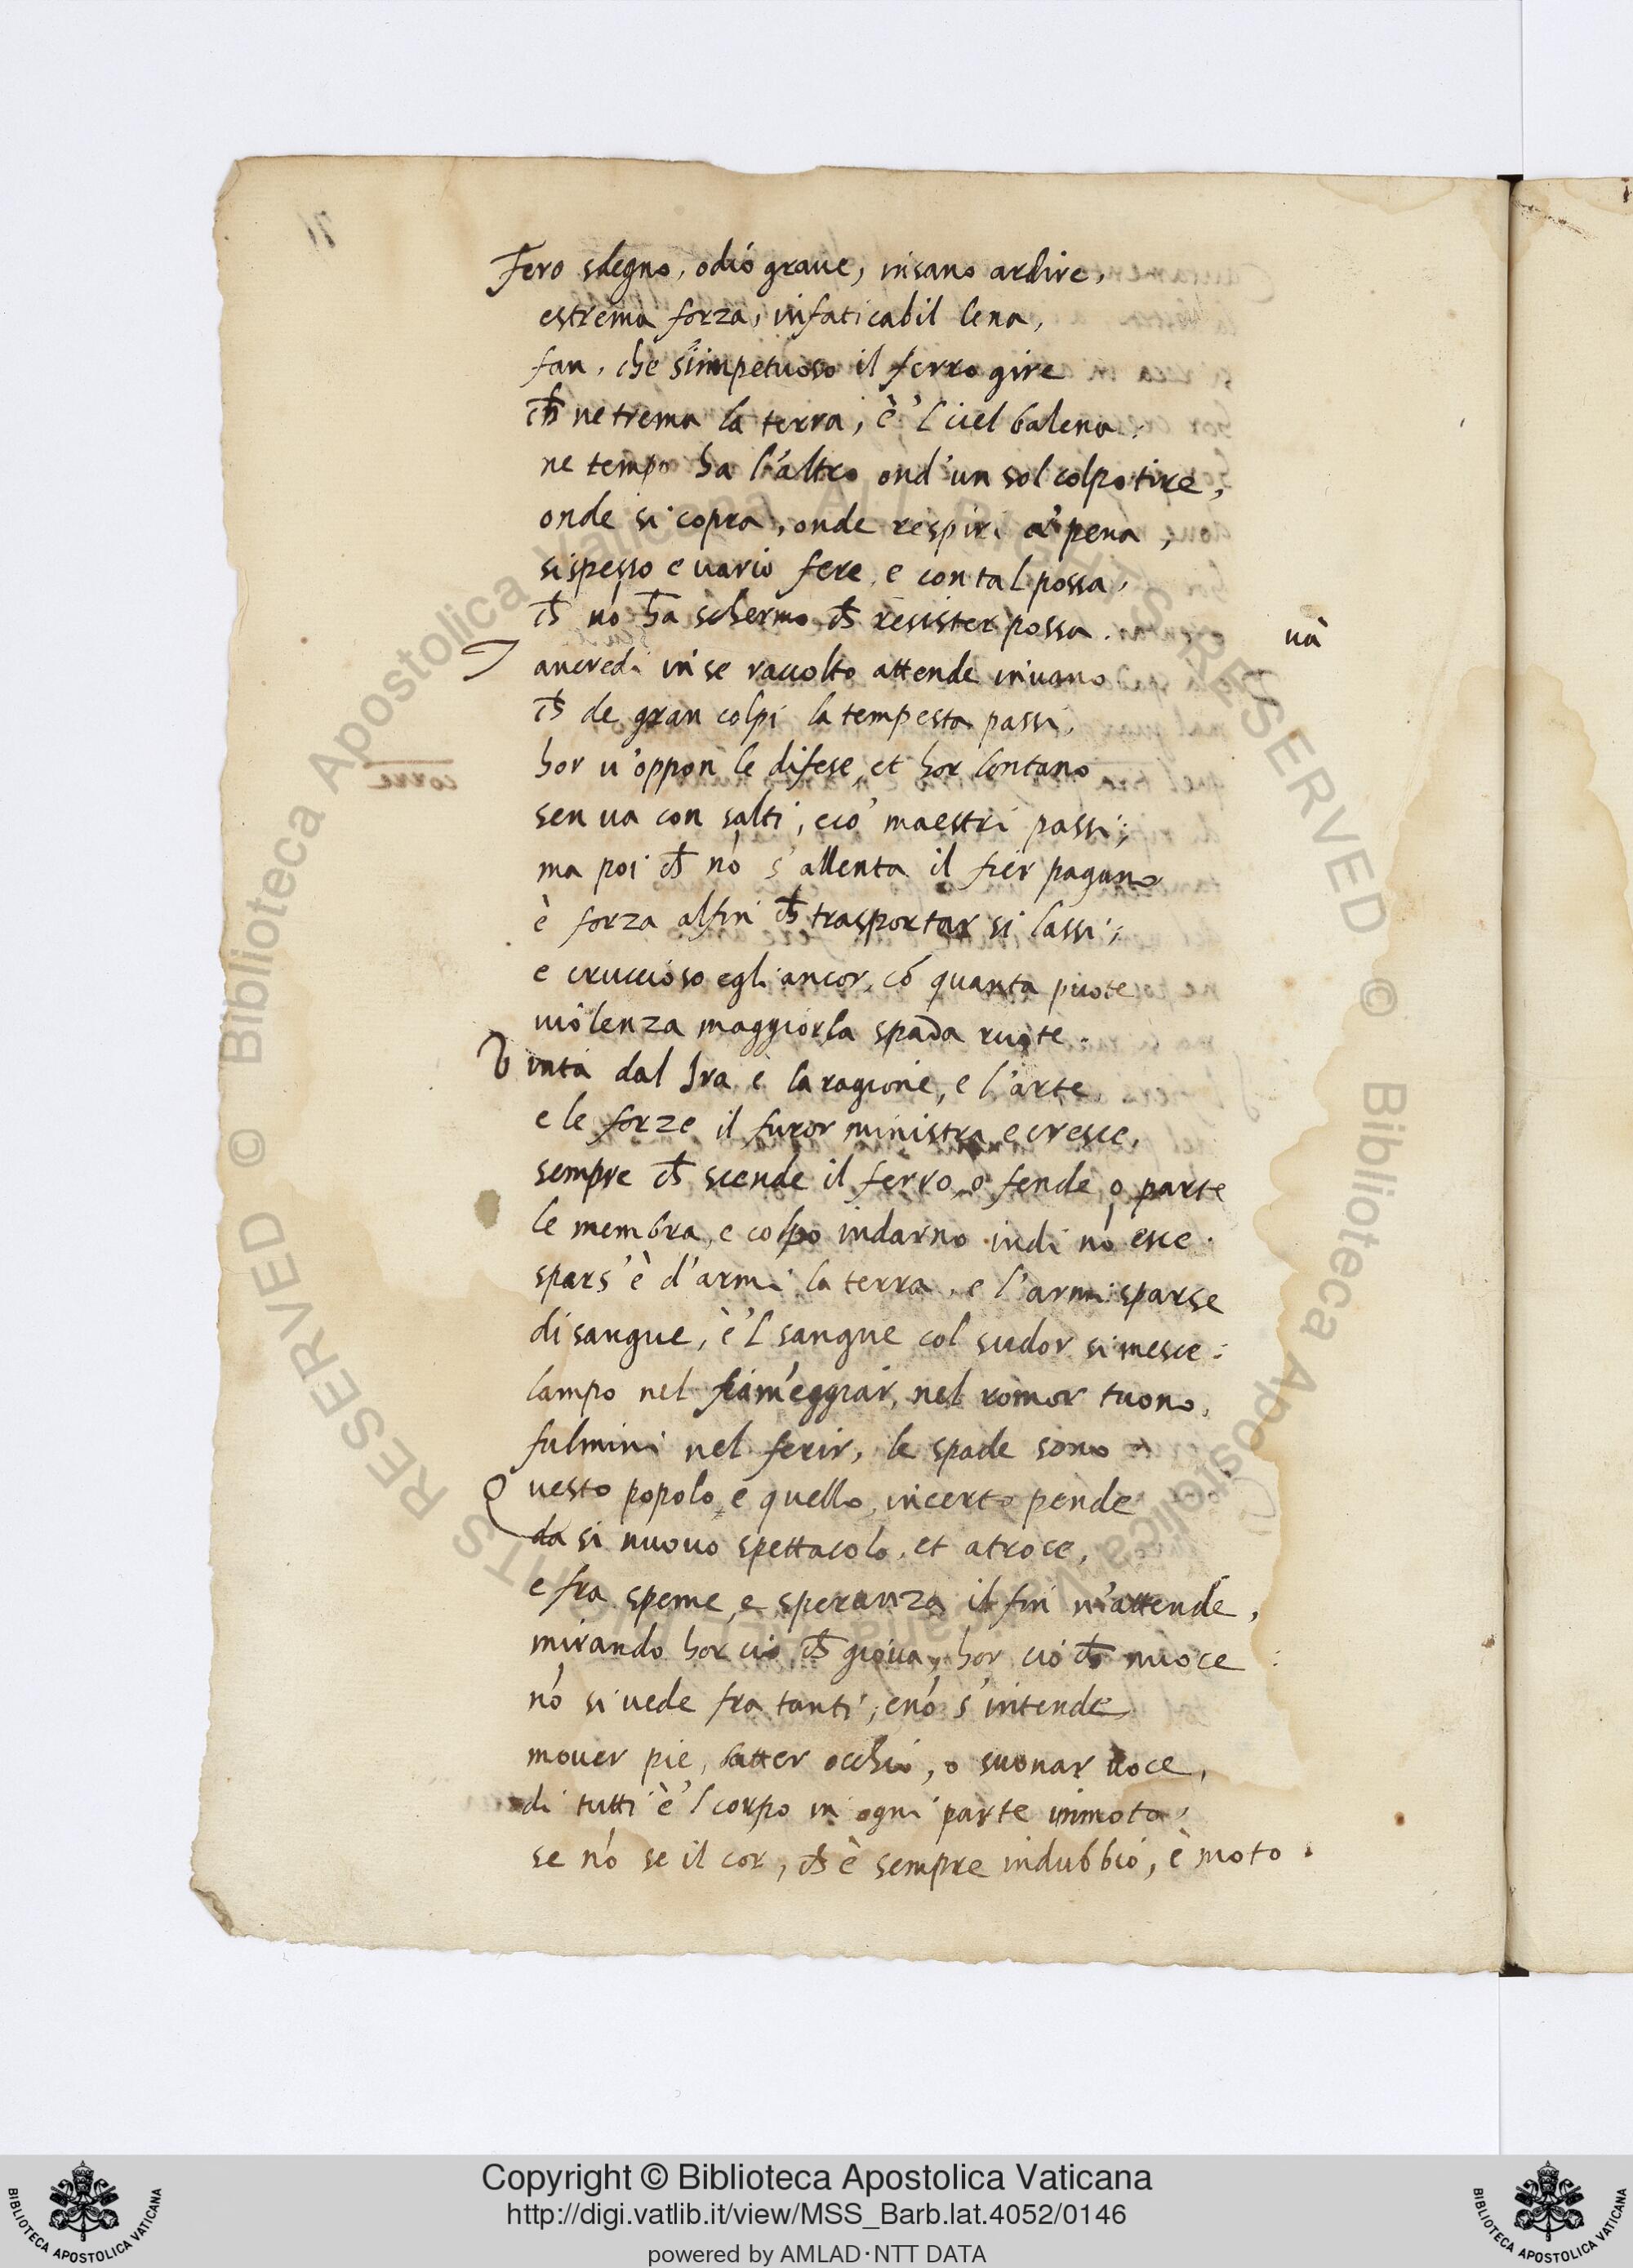 Fero sdegno, odio graue, insano ardire,
estrema forza, infaticabil lena,
fan, che s'impetuoso il ferro gire
ch̄ ne trema la terra, è 'l ciel balena:
ne tempo ha l'altro ond'un sol colpo tire,
onde si copra, onde respiri a' pena,
si spesso e uario fere, e con tal possa,
ch̄ nō ha schermo ch̄ resister possa.
uà
Tancredi in se raccolto attende inuano
ch̄ de gran colpi la tempesta passi,
hor u'oppon le difese, et hor lontano
corre
sen ua con salti, e cō maestri passi;
ma poi ch̄ nō s'allenta il fier pagano
è forza alfin ch̄ trasportar si lassi;
e cruccioso egli ancor, cō quanta puote
uiolenza maggior la spada ruote.
Vinta dal Ira è la ragione, e l'arte
e le forze il furor ministra e cresce,
sempre ch̄ scende il ferro, o fende, o parte
le membra, e colpo indarno indi nō esce.
spars'è d'armi la terra, e l'armi sparse
di sangue, è 'l sangue col sudor si mesce:
lampo nel fiām̄eggiar, nel romor tuono,
fulmini nel ferir, le spade sono
Questo popolo, e quello, incerto pende
da si nuouo spettacolo, et atroce,
e fra speme, e speranza il fin n'attende,
mirando hor ciò ch̄ gioua, hor ciò ch̄ nuoce:
nō si uede fra tanti, e nō s'intende
mouer pie, batter occhio, o suonar uoce,
di tutti è 'l corpo in ogni parte immoto,
se nō se il cor, ch̄ è sempre in dubbio, è moto.
© Biblioteca Apostolica Vaticana ALL RIGHTS RESERVED © Biblioteca Apostolica Vaticana ALL RIGHTS RESERVED
Copyright © Biblioteca Apostolica Vaticana
http://digi.vatlib.it/view/MSS_Barb.lat.4052/0146
powered by AMLAD·NTT DATA
BIBLIOTECA APOSTOLICA VATICANA
BIBLIOTECA APOSTOLICA VATICANA